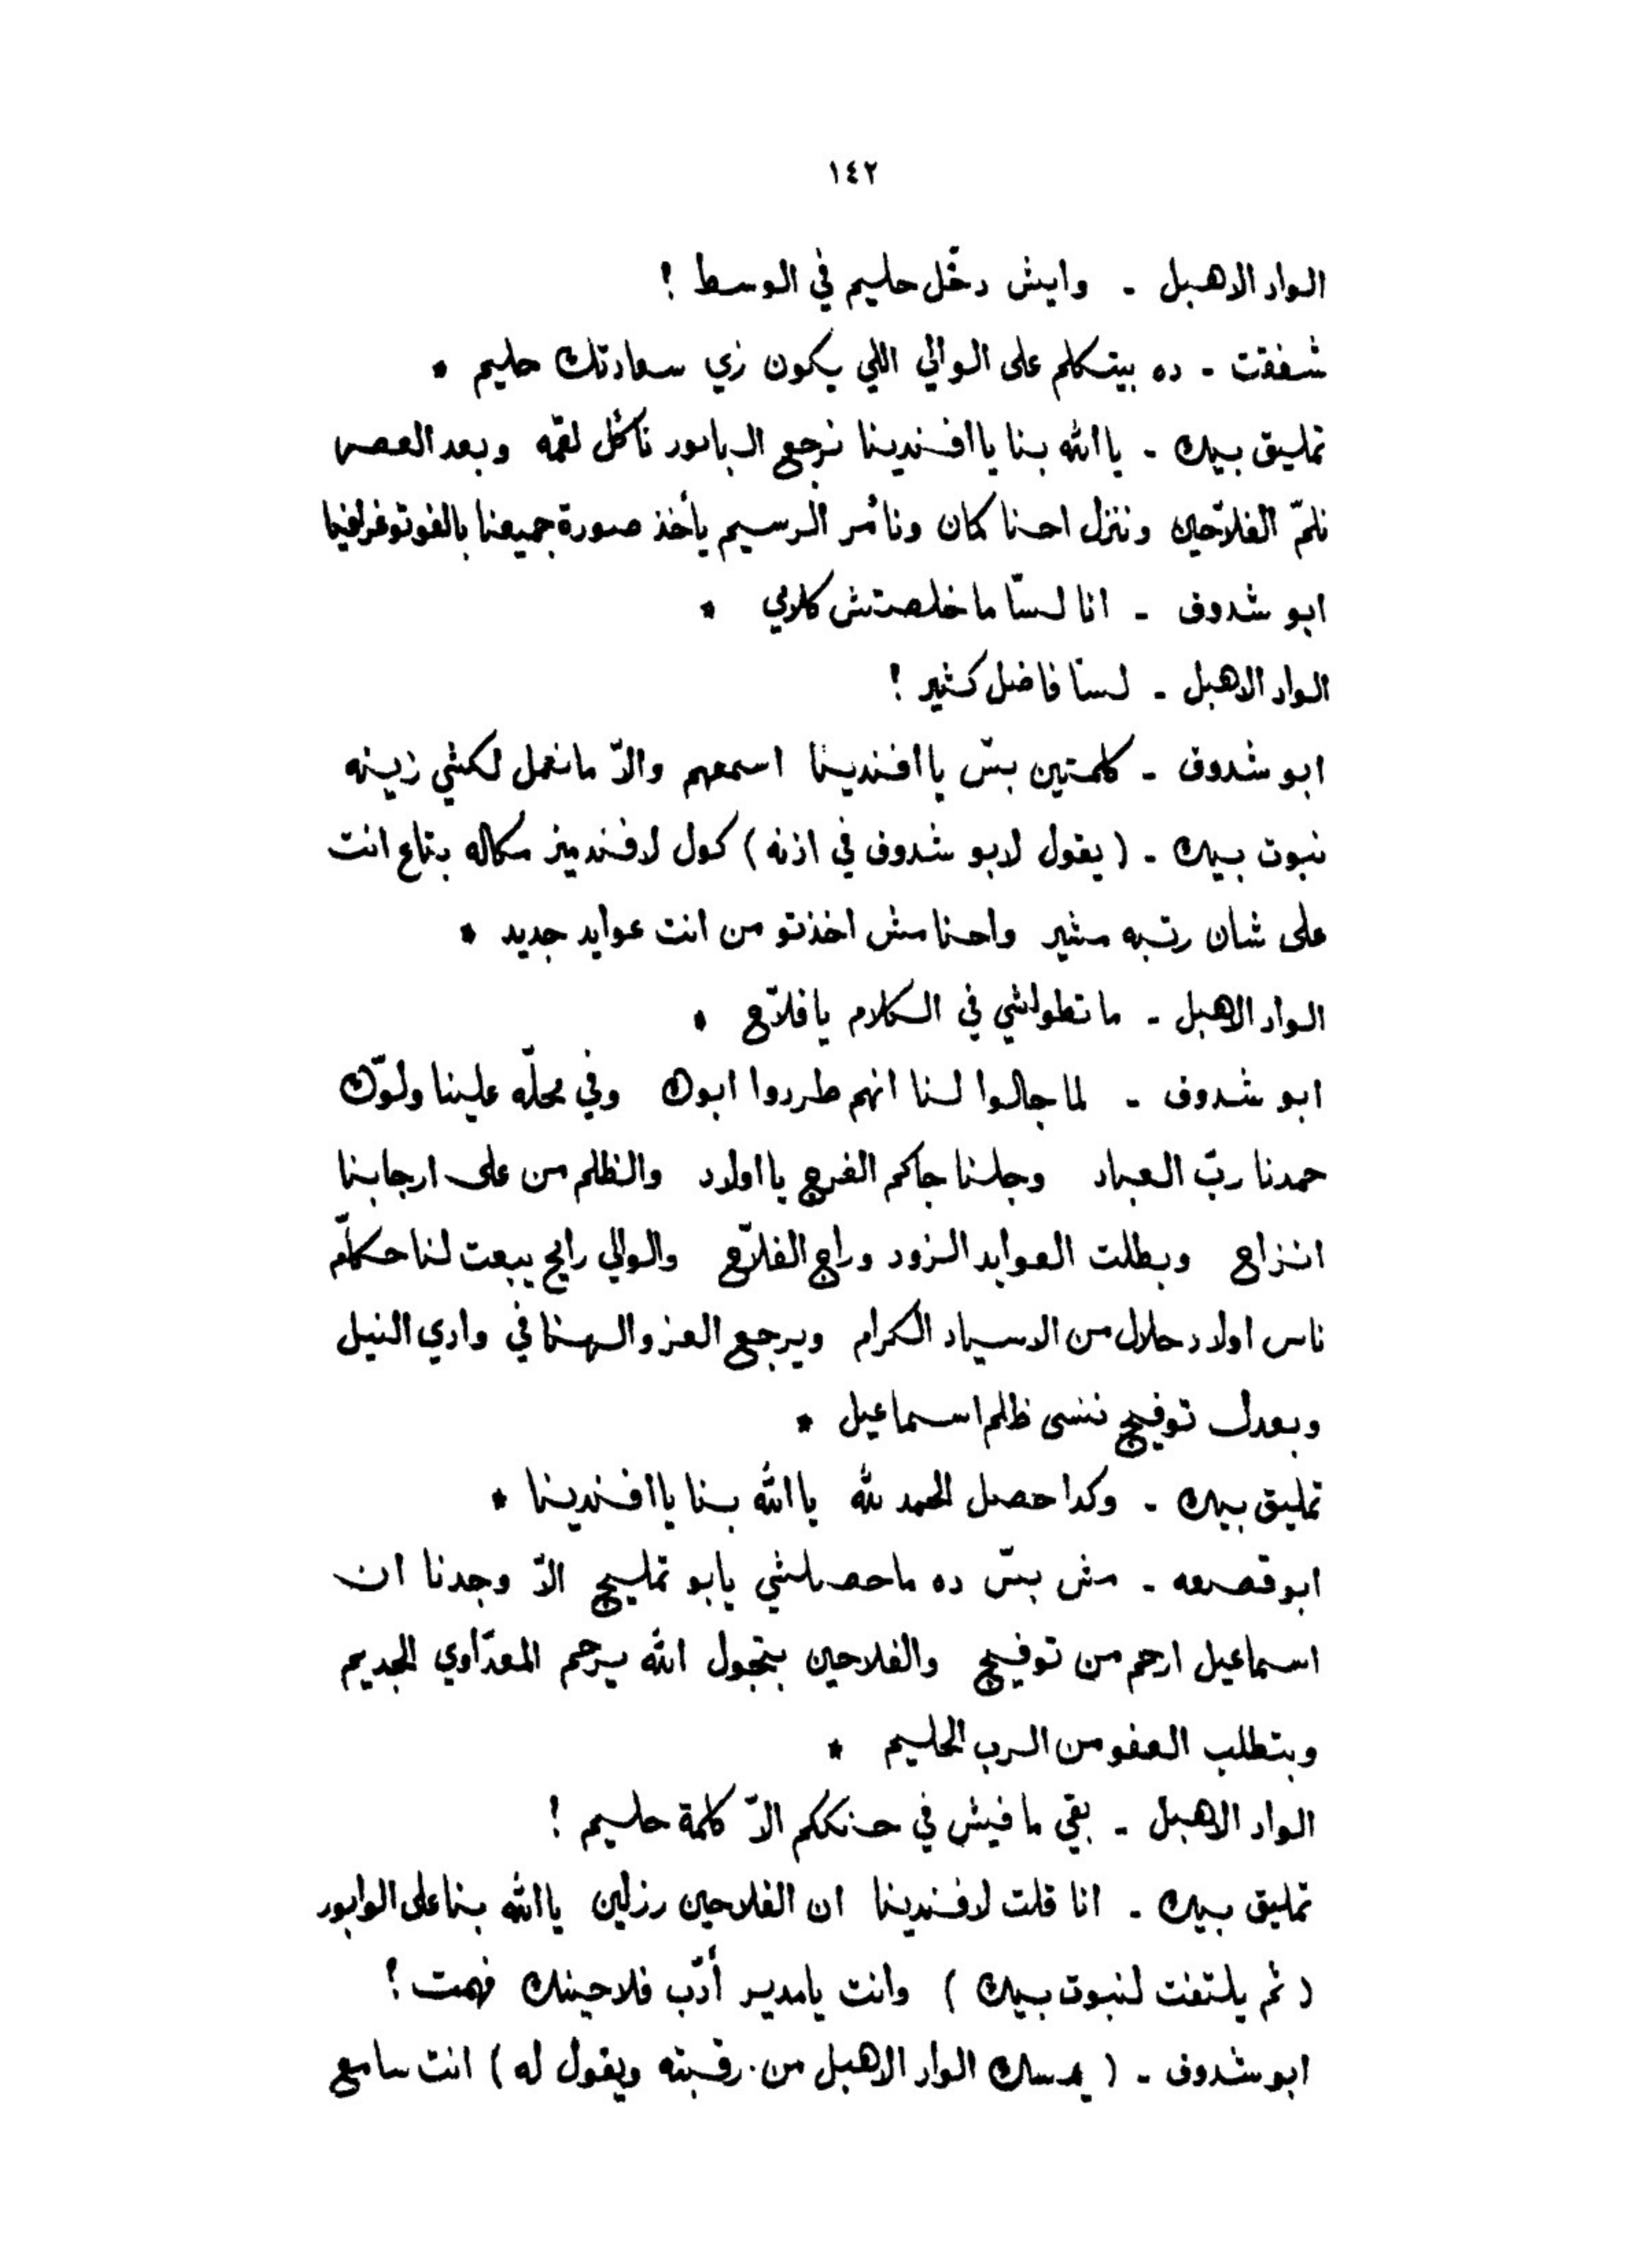 ١٤٢
الواد الاهبل - وايش دخّل حليم في الوسط !
شفقت - ده بيتكلم على الوالي اللي يكون زي سعادتك حليم *
تمليق بيك - ياالله بنا ياافندينا نرجع البابور ناكُل لقمه وبعد العصر
نلمّ الفلاّحين وننزل احنا كمان ونأمر الرسيم يأخذ صورة جميعنا بالفوتوغرافيا
ابو شدوف - انا لسّا ماخلصتش كلامي *
الواد الاهبل - لسّا فاضل كثير !
ابو شدوف - كلمتين بسّ ياافندينا اسمعهم والاّ مانعمل لكشي زينه
نبوت بيك - ( يقول لابو شدوف في اذنه ) كول لافندميز مكاله بتاع انت
على شان رتبه مشير واحنا مش اخذتو من انت عوايد جديد *
الواد الاهبل - ماتطولشي في الكلام يافلاّح *
ابو شدوف - لما جالوا لنا انهم طردوا ابوك وفي محلّه علينا ولّوك
حمدنا ربّ العباد وجلنا جاكم الفرج يااولاد والظلم من على ارجابنا
انزاح وبطلت العوايد الزود وراج الفلاّح والوالي رايح يبعت لنا حكّام
ناس اولاد حلال من الاسياد الكرام ويرجع العز والهنا في وادي النيل
وبعدل توفيج ننسى ظلم اسماعيل *
تمليق بيك - وكدا حصل الحمد لله ياالله بنا ياافندينا *
ابوقصعه - مش بسّ ده ماحصلشي يابو تمليج الاّ وجدنا ان
اسماعيل ارحم من توفيج والفلاحين بتجول الله يرحم المعدّاوي الجديم
وبتطلب العفو من الرب الحليم *
الواد الاهبل - بقي مافيش في حنككم الاّ كلمة حليم !
تمليق بيك - انا قلت لافندينا ان الفلاحين رزلين ياالله بنا على الوابور
( ثم يلتفت لنبوت بيك ) وانت يامدير أدّب فلاحينك فهمت ؟
ابو شدوف - ( يمسك الواد الاهبل من رقبته ويقول له ) انت سامع